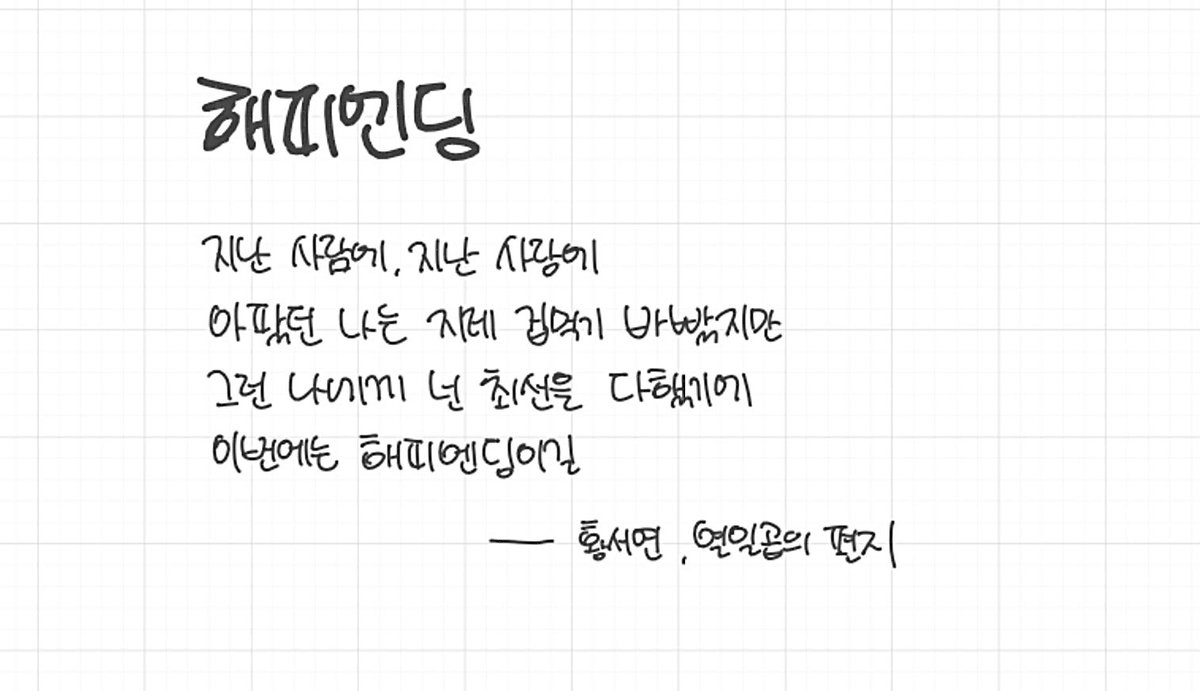 해피엔딩
지난 사람에, 지난 사랑에
아팠던 나는 지레 겁먹기 바빴지만
그런 나에게 넌 최선을 다했기에
이번에는 해피엔딩이길
— 황서연, 열일곱의 편지